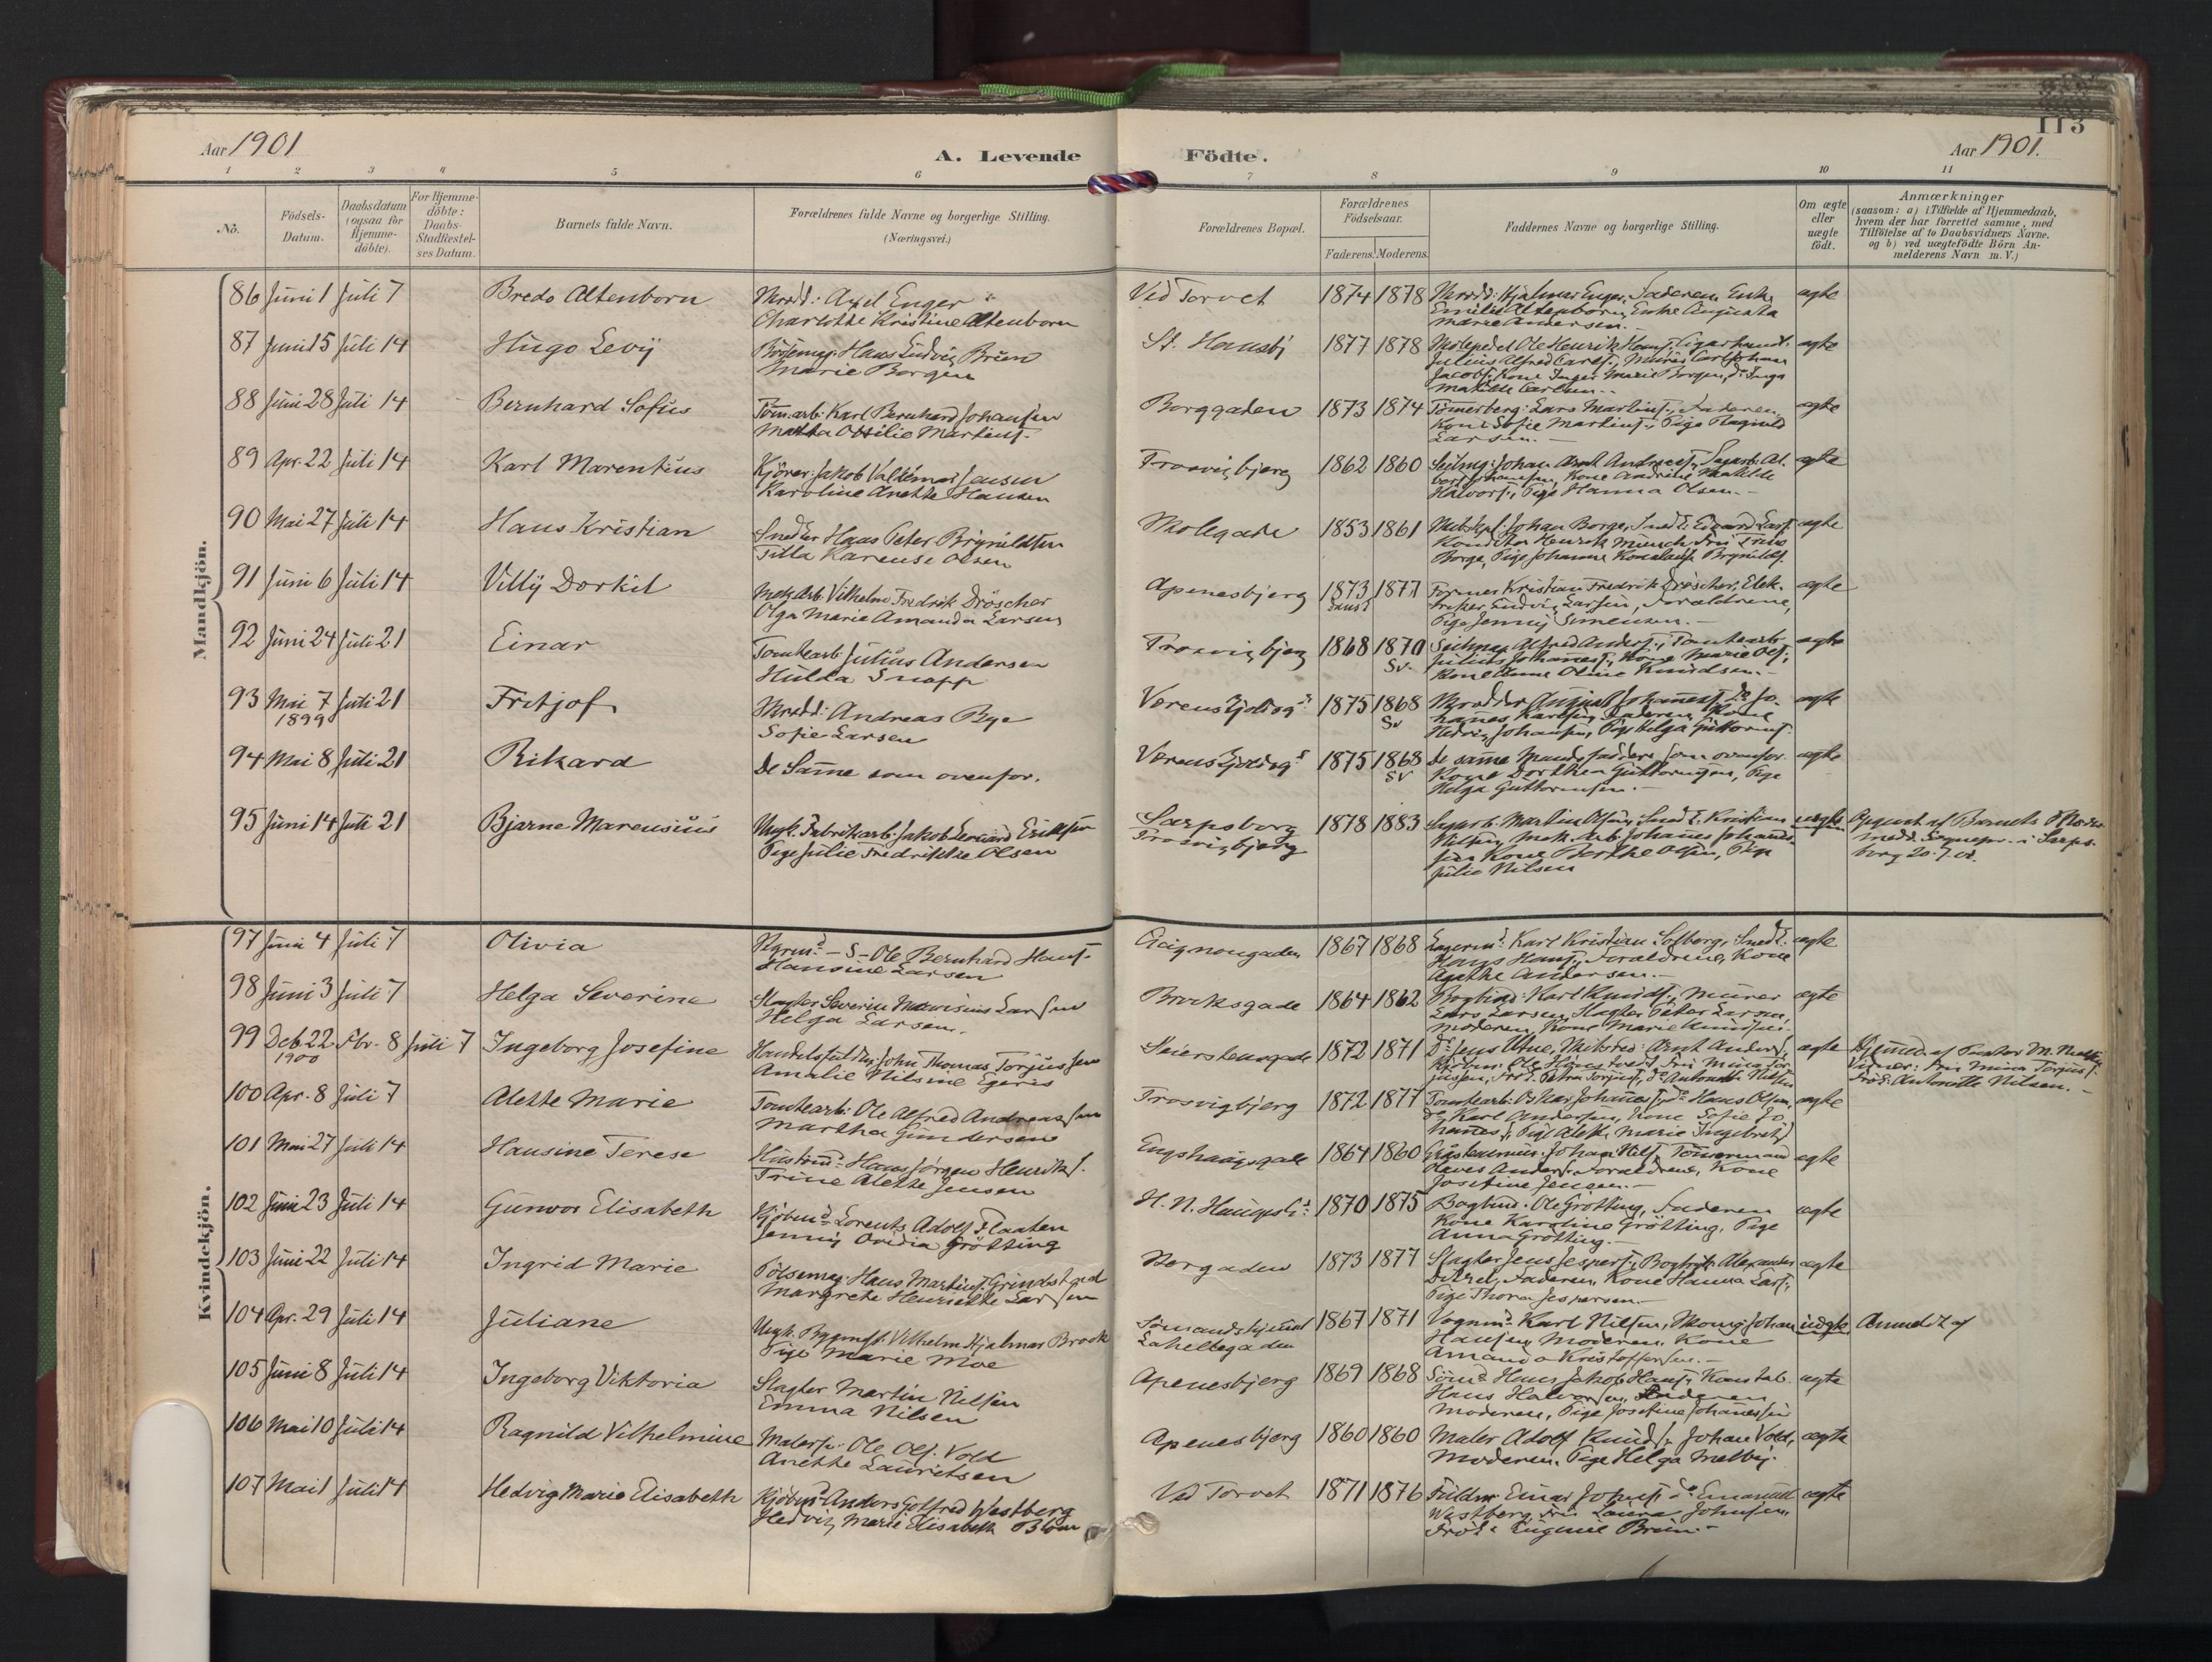 113
Aar 1901
A. Levende Födte.
Aar 1901.
1 2 3 4 5 6 7 8 9 10 11
No.
Födsels-Datum.
Daabsdatum (ogsaa for Hjemme-döbte).
For Hjemme-döbte: Daabs-Stadfæstel-ses Datum.
Barnets fulde Navn.
Forældrenes fulde Navne og borgerlige Stilling.
(Næringsvei.)
Forældrenes Bopæl.
Forældrenes Födselsaar.
Faderens. Moderens.
Faddernes Navne og borgerlige Stilling.
Om ægte eller uægte födt.
Anmærkninger
(saasom: a) i Tilfælde af Hjemmedaab,
hvem der har forrettet samme, med
Tilföielse af to Daabsvidners Navne.
og b) ved uægtefödte Börn An-
melderens Navn m. V.)
Mandkjön.
86 Juni 1 Juli 7 Bredo Altenborn Skrædd: Axel Enger
Charlotte Kristine Altenborn
Ved Torvet 1874 1878 Skrædd: Hjalmar Enger, Faderen, Enke
Emilie Altenborn, Enke Augusta
Marie Andersen. ægte
87 Juni 15 Juli 14 Hugo Levy Hans Ludvig Brun
Marie Borgen
St. Hansbj 1877 1878 Ole Henrik
Julius Alfred
Kone Inger Marie Borgen, do Inga
Mathilde Carlsen. ægte
88 Juni 28 Juli 14 Bernhard Sofus Tom.arb: Karl Bernhard Johansen
Ottilie Martins.
Borggaden 1873 1874 Lars Martins., Faderen,
Kone Sofie Martins., Pige Ragnild
Larsen. ægte
89 Apr. 22 Juli 14 Karl Marentius Kjörer: Jakob Valdemar Jensen
Karoline Anette Hansen
Trosvigbjerg 1862 1860 Johan Arnt
Kone Andrine Matilde
Halvors., Pige Hanna Olsen. ægte
90 Mai 27 Juli 14 Hans Kristian Snedker Hans Peter Brynildsen
Tilla Karense Olsen
Skolegade 1853 1861 Johan Borge, Edvard Lars.
Konditor Henrik Münch, Fru Trine
Borge, Pige Johanne Brynilds. ægte
91 Juni 6 Juli 14 Villy Dorkil Mek.arb. Vilhelm Fredrik Dröscher
Olga Marie Amanda Larsen
Apenesbjerg 1873 1877 Former Kristian Fredrik Dröscher, Elek-
Ludvig Larsen, Forældrene,
Pige Jenny Simensen. ægte
92 Juni 24 Juli 21 Einar Tomtearb: Julius Andersen
Hulda Snopp
Trosvigbjerg 1868 1870
Sv. Alfred Anders., Tomtearb.
Julius Johannes., Kone Marie Ols.,
Kone Anne Oline Knudsen. ægte
93 Mai 7
1899 Juli 21 Fritjof Skrædd: Andreas Bye
Sofie Larsen
1875 1868
Sv Skrædder August Johannes. do Jo-
hannes Karlsen, Faderen, Kone
Hedvig Johansen, Pige Helga Guttorms. ægte
94 Mai 8 Juli 21 Rikard De Samme som ovenfor.
1875 1868
Sv De samme Mandsfaddere som ovenfor
Kone Dorthea Guttormsen, Pige
Helga Guttormsen. ægte
95 Juni 14 Juli 21 Bjarne Marensius Ungk. Fabrikarb. Jakob Edvard Eriksen
Pige Julie Fredrikke Olsen
Sarpsborg
Trosvigbjerg 1878 1883 Sagarb. Martin Olsen, Kristian
Nilsen, Mek. Arb. Johannes Johannes-
sen, Kone Berthe Olsen, Pige
Julie Nilsen uægte Opgivet af Barnets Moder
Sognepr. i Sarps-
borg 20.7.01.
Kvindekjön.
97 Juni 4 Juli 7 Olivia Ole Bernhard Hans.
Hansine Larsen
Cicignongaden 1867 1868 Lagermd: Karl Kristian Solberg,
Hans Hans., Forældrene, Kone
Agathe Andersen. ægte
98 Juni 3 Juli 7 Helga Severine Slagter Severin Larsen
Helga Larsen.
Brocksgade 1864 1862 Bogbind: Karl Knuds., Murer
Lars Larsen, Slagter Peter Larsen,
Moderen, Kone Marie Knudsen. ægte
99 Deb 22
1900 Fbr. 8 Juli 7 Ingeborg Josefine John Thomas Torjussen
Amalie Nilsine Egenes
1872 1871 Jens Utne, Arnt Anders.,
Kjöbm: Ole Fru Mina Tor-
jussen, Frök. Petra Torjus., do Antonette Nilsen ægte Hjemmed. af Pastor M.
Vidner: Fru Mina Torjus.
Frök. Antonette Nilsen.
100 Apr. 8 Juli 7 Alette Marie Tomtearb: Ole Alfred Andreassen
Martha Gundersen
Trosvigbjerg 1872 1877 Tomtearb: Oskar Johannes., do Hans Olsen,
do Karl Andersen, Kone Sofie Jo-
hannes., Pige Alette Marie Ingebrets. ægte
101 Mai 27 Juli 14 Hansine Terese Hans Jörgen Henriks.
Trine Alette Jensen
Engshaugsgade 1864 1860 Johan Nils., Tömmermand
Anders., Forældrene, Kone
Josefine Jensen. ægte
102 Juni 23 Juli 14 Gunvor Elisabeth Kjöbmd Lorents Adolf Flaaten
Jenny Ovidia Grötting
H. N. Haugesgt 1870 1875 Bogbind. Ole Grötting, Faderen
Kone Karoline Grötting, Pige
Anna Grötting. ægte
103 Juni 22 Juli 14 Ingrid Marie Pölsemag: Hans Martins. Grindstad
Margrete Henriette Larsen
Borgaden 1873 1877 Slagter Jens Jespers., Bogtryk. Alexander
Faderen, Kone Hanna Lars.,
Pige Thora Jespersen. ægte
104 Apr. 29 Juli 14 Juliane Ungk. Vilhelm Hjalmar Brook
Pige Marie Moe
Sömandshjemmet
Lahellegaden 1867 1871 Vognmd. Karl Nilsen, Johan
Hansen, Moderen, Kone
Amanda Kristoffersen. uægte Anmeldt af
105 Juni 8 Juli 14 Ingeborg Viktoria Slagter Martin Nilsen
Emma Nilsen
Apenesbjerg 1869 1868 Sömd Hans Jakob Hans., Konstab.
Hans Halvorsen,
Moderen, Pige Josefine Johannessen ægte
106 Mai 10 Juli 14 Ragnild Vilhelmine Malerf: Ole Ols. Vold
Anette Lauritsen
Apenesbjerg 1860 1860 Maler Adolf Knuds., Johan Vold,
Moderen, Pige Helga Melby. ægte
107 Mai 1 Juli 14 Hedvig Marie Elisabeth Kjöbmd Anders Gotfred Westberg
Hedvig Marie Elisabeth Blom
Ved Torvet 1871 1876 Fuldm. Einar Johns. do Emanuel
Westberg, Fru Laura Johnsen,
Frök: Eugenie Brun. ægte